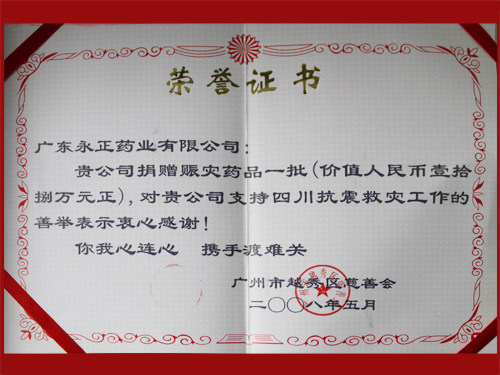 荣誉证书
广东永正药业有限公司：
贵公司捐赠赈灾药品一批(价值人民币壹拾
捌万元正)，对贵公司支持四川抗震救灾工作的
善举表示衷心感谢！
你我心连心 携手渡难关
广州市越秀区慈善会
二〇〇八年五月